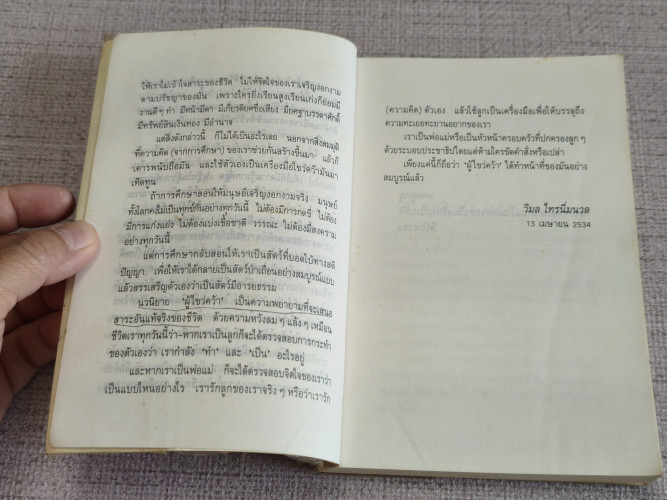 ให้เราไม่เข้าใจสาระของชีวิต ไม่ให้จิตใจของเราเจริญงอกงาม
ตามปรัชญาของมัน เพราะใครยิ่งเรียนสูงเรียนเก่งก็ย่อมมี
งานดีๆ ทำ มีหน้ามีตา มีเกียรติยศชื่อเสียง มียศฐาบรรดาศักดิ์
มีทรัพย์สินเงินทอง มีอำนาจ
แต่สิ่งดังกล่าวนี้ ก็ไม่ได้เป็นอะไรเลย นอกจากสิ่งสมมุติ
ที่ความคิด (จากการศึกษา) ของเราช่วยกันสร้างขึ้นมา แล้วก็
เคารพนับถือมัน และใช้ตัวเองเป็นเครื่องมือไขว่คว้ามันมา
เทิดทูน
ถ้าการศึกษาสอนให้มนุษย์เจริญงอกงามจริง มนุษย์
ทั้งโลกคงไม่เป็นทุกข์กันอย่างทุกวันนี้ ไม่ต้องมีการกดขี่ ไม่ต้อง
มีการแก่งแย่ง ไม่ต้องแบ่งเชื้อชาติ วรรณะ ไม่ต้องมีสงคราม
อย่างทุกวันนี้
แต่การศึกษากลับสอนให้เราเป็นสัตว์ที่บอดใบ้ทางสติ
ปัญญา เพื่อให้เราได้กลายเป็นสัตว์ป่าเถื่อนอย่างสมบูรณ์แบบ
แล้วสรรเสริญตัวเองว่าเป็นสัตว์มีอารยธรรม
นวนิยาย 'ผู้ไขว่คว้า' เป็นความพยายามที่จะเสนอ
สาระอันแท้จริงของชีวิต ด้วยความหวังลมๆ แล้งๆ เหมือน
ชีวิตเราทุกวันนี้ว่า-หากเราเป็นลูกก็จะได้ตรวจสอบการกระทำ
ของตัวเองว่า เรากำลัง 'ทำ' และ 'เป็น' อะไรอยู่
และหากเราเป็นพ่อแม่ ก็จะได้ตรวจสอบจิตใจของเราว่า
เป็นแบบไหนอย่างไร เรารักลูกของเราจริงๆ หรือว่าเรารัก
(ความคิด) ตัวเอง แล้วใช้ลูกเป็นเครื่องมือเพื่อให้บรรลุถึง
ความทะเยอทะยานอยากของเรา
เราเป็นพ่อแม่หรือเป็นหัวหน้าครอบครัวที่ปกครองลูกๆ
ด้วยระบอบประชาธิปไตยแต่ห้ามใครขัดคำสั่งหรือเปล่า
เพียงแค่นี้ก็ถือว่า 'ผู้ไขว่คว้า' ได้ทำหน้าที่ของมันอย่าง
สมบูรณ์แล้ว
วิมล ไทรนิ่มนวล
13 เมษายน 2534